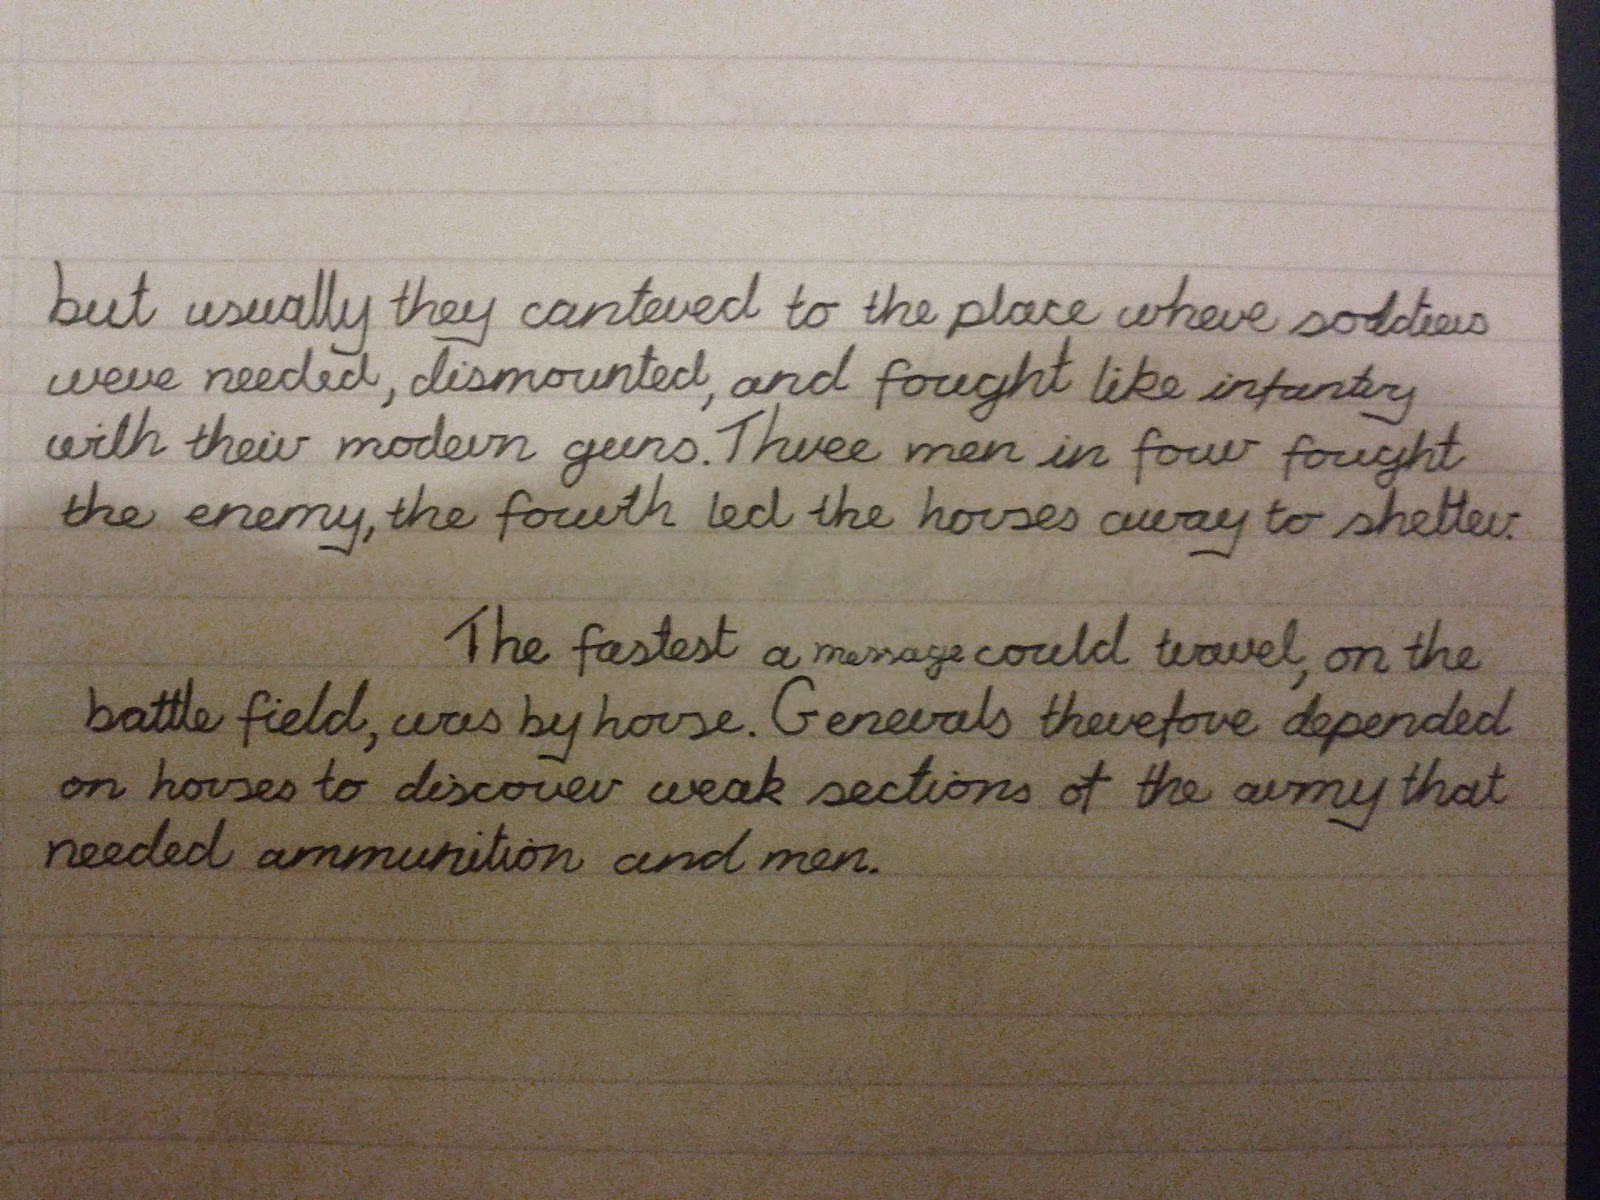 but usually they cantered to the place where soldiers
were needed, dismounted, and fought like infantry
with their modern guns. Three men in four fought
the enemy, the fourth led the horses away to shelter.
The fastest a message could travel, on the
battle field, was by horse. Generals therefore depended
on horses to discover weak sections of the army that
needed ammunition and men.